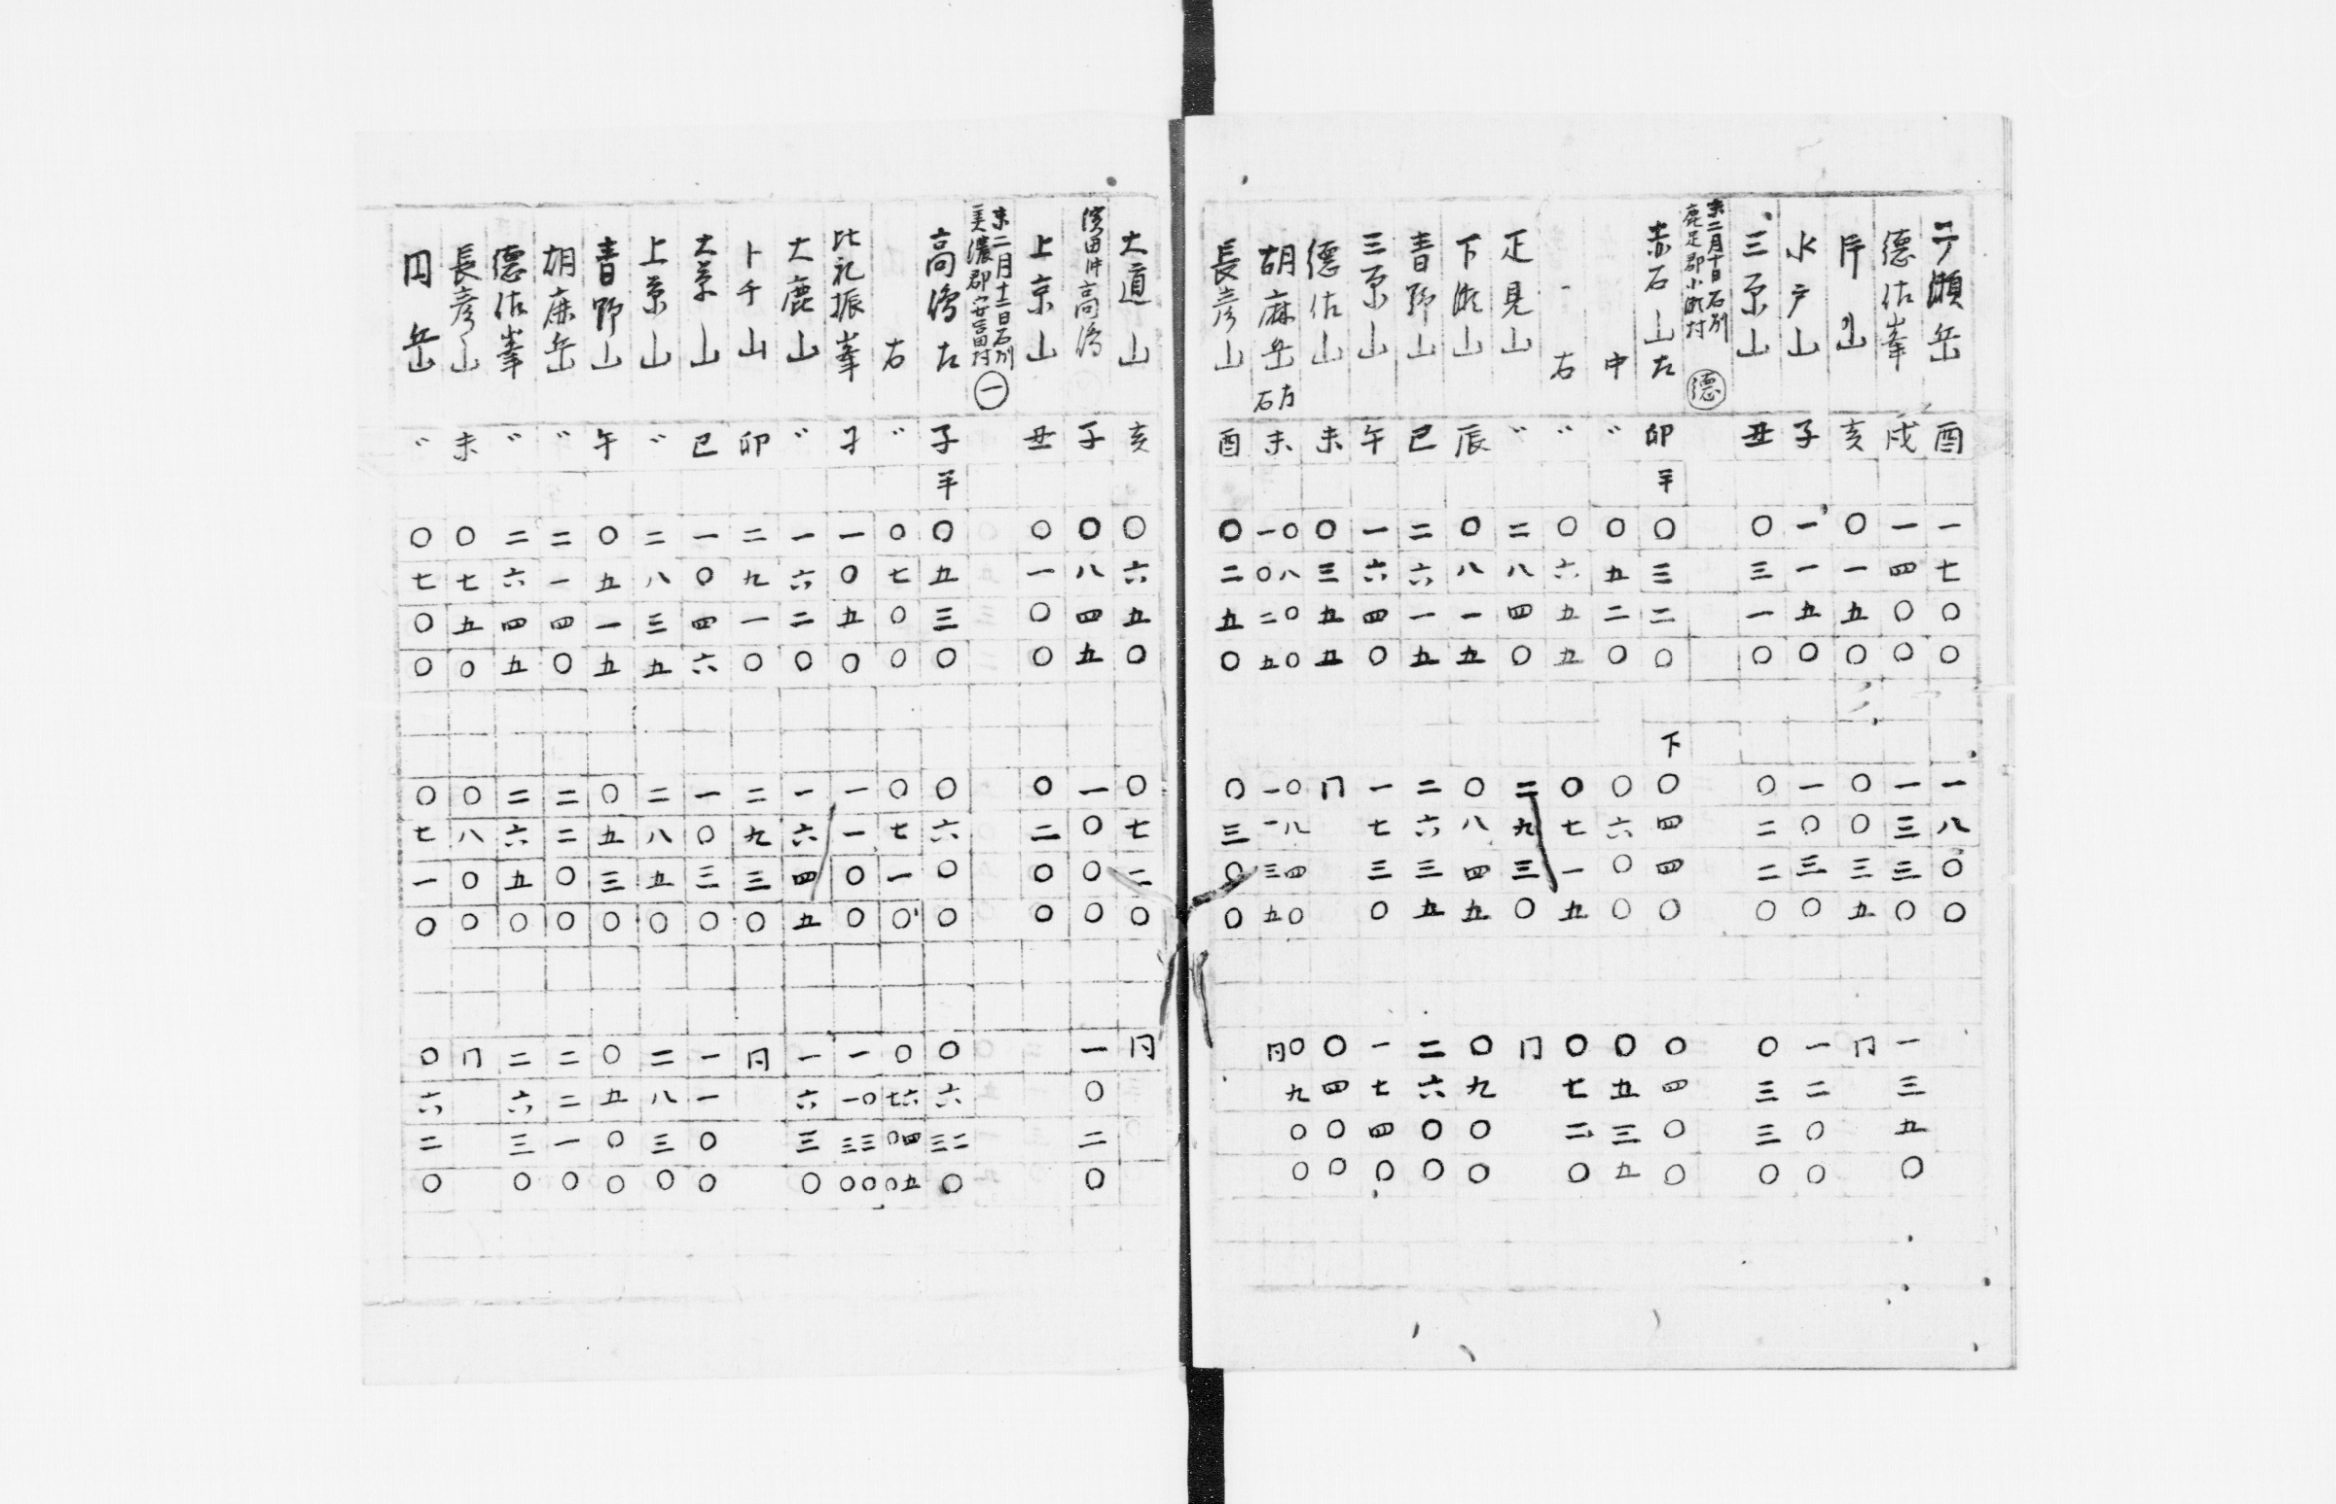 下瀬岳 酉 一七〇〇 一八〇〇
德佐峯 戌 一四〇〇 一三三〇 一三五〇
片山 亥 〇一五〇 〇〇三五 冂
水戸山 子 一一五〇 一〇三〇 一二〇〇
三原山 丑 〇三一〇 〇二二〇 〇三三〇
未二月十日石刕
鹿足郡小瀬村 德
赤石山左 卯 半 〇三二〇 下 〇四四〇 〇四〇〇
中 〃 〇五二〇 〇六〇〇 〇五三五
右 〃 〇六五五 〇七一五 〇七二〇
疋見山 〃 二八四〇 二九三〇 冂
下瀬山 辰 〇八一五 〇八四五 〇九〇〇
青野山 巳 二六一五 二六三五 二六〇〇
三原山 午 一六四〇 一七三〇 一七四〇
德佐山 未 〇三五五 冂 〇四〇〇
胡麻岳 左 未 〇八〇〇 〇八四〇 〇九〇〇
右 一〇二五 一一三五 同
長彦山 酉 〇二五〇 〇三〇〇
大道山 亥 〇六五〇 〇七二〇 同
濱田沖高嶋 子 〇八四五 一〇〇〇 一〇二〇
上京山 丑 〇一〇〇 〇二〇〇
未二月十二日石刕
美濃郡安富村 一
高嶋左 子 半 〇五三〇 〇六〇〇
右 〃 〇七〇〇 〇七一〇
比礼振峯 子 一〇五〇 一一〇〇
大鹿山 〃 一六二〇 一六四五 一六三〇
卜千山 卯 二九一〇 二九三〇 同
大草山 巳 一〇四六 一〇三〇 一一〇〇
上京山 〃 二八三五 二八五〇 二八三〇
青野山 午 〇五一五 〇五三〇 〇五〇〇
胡麻岳 〃 二一四〇 二二〇〇 二二一〇
德佐峯 〃 二六四五 二六五〇 二六三〇
長彦山 未 〇七五〇 〇八〇〇 冂
円岳 〃 〇七〇〇 〇七一〇 〇六二〇